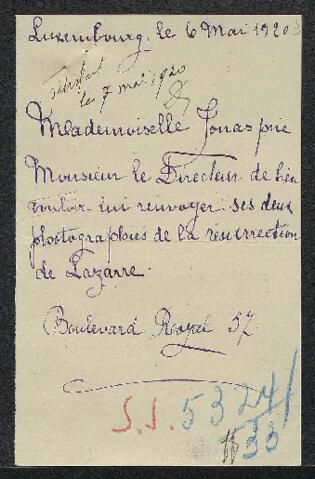 Luxembourg, le 6 Mai 1920
les 7 mai 1920
Mademoiselle Jonas prie
Monsieur le Directeur de bien
vouloir lui renvoyer ses deux
photographies de la résurrection
de Lazarre.
Boulevard Royal 57
S.I. 5324/
33